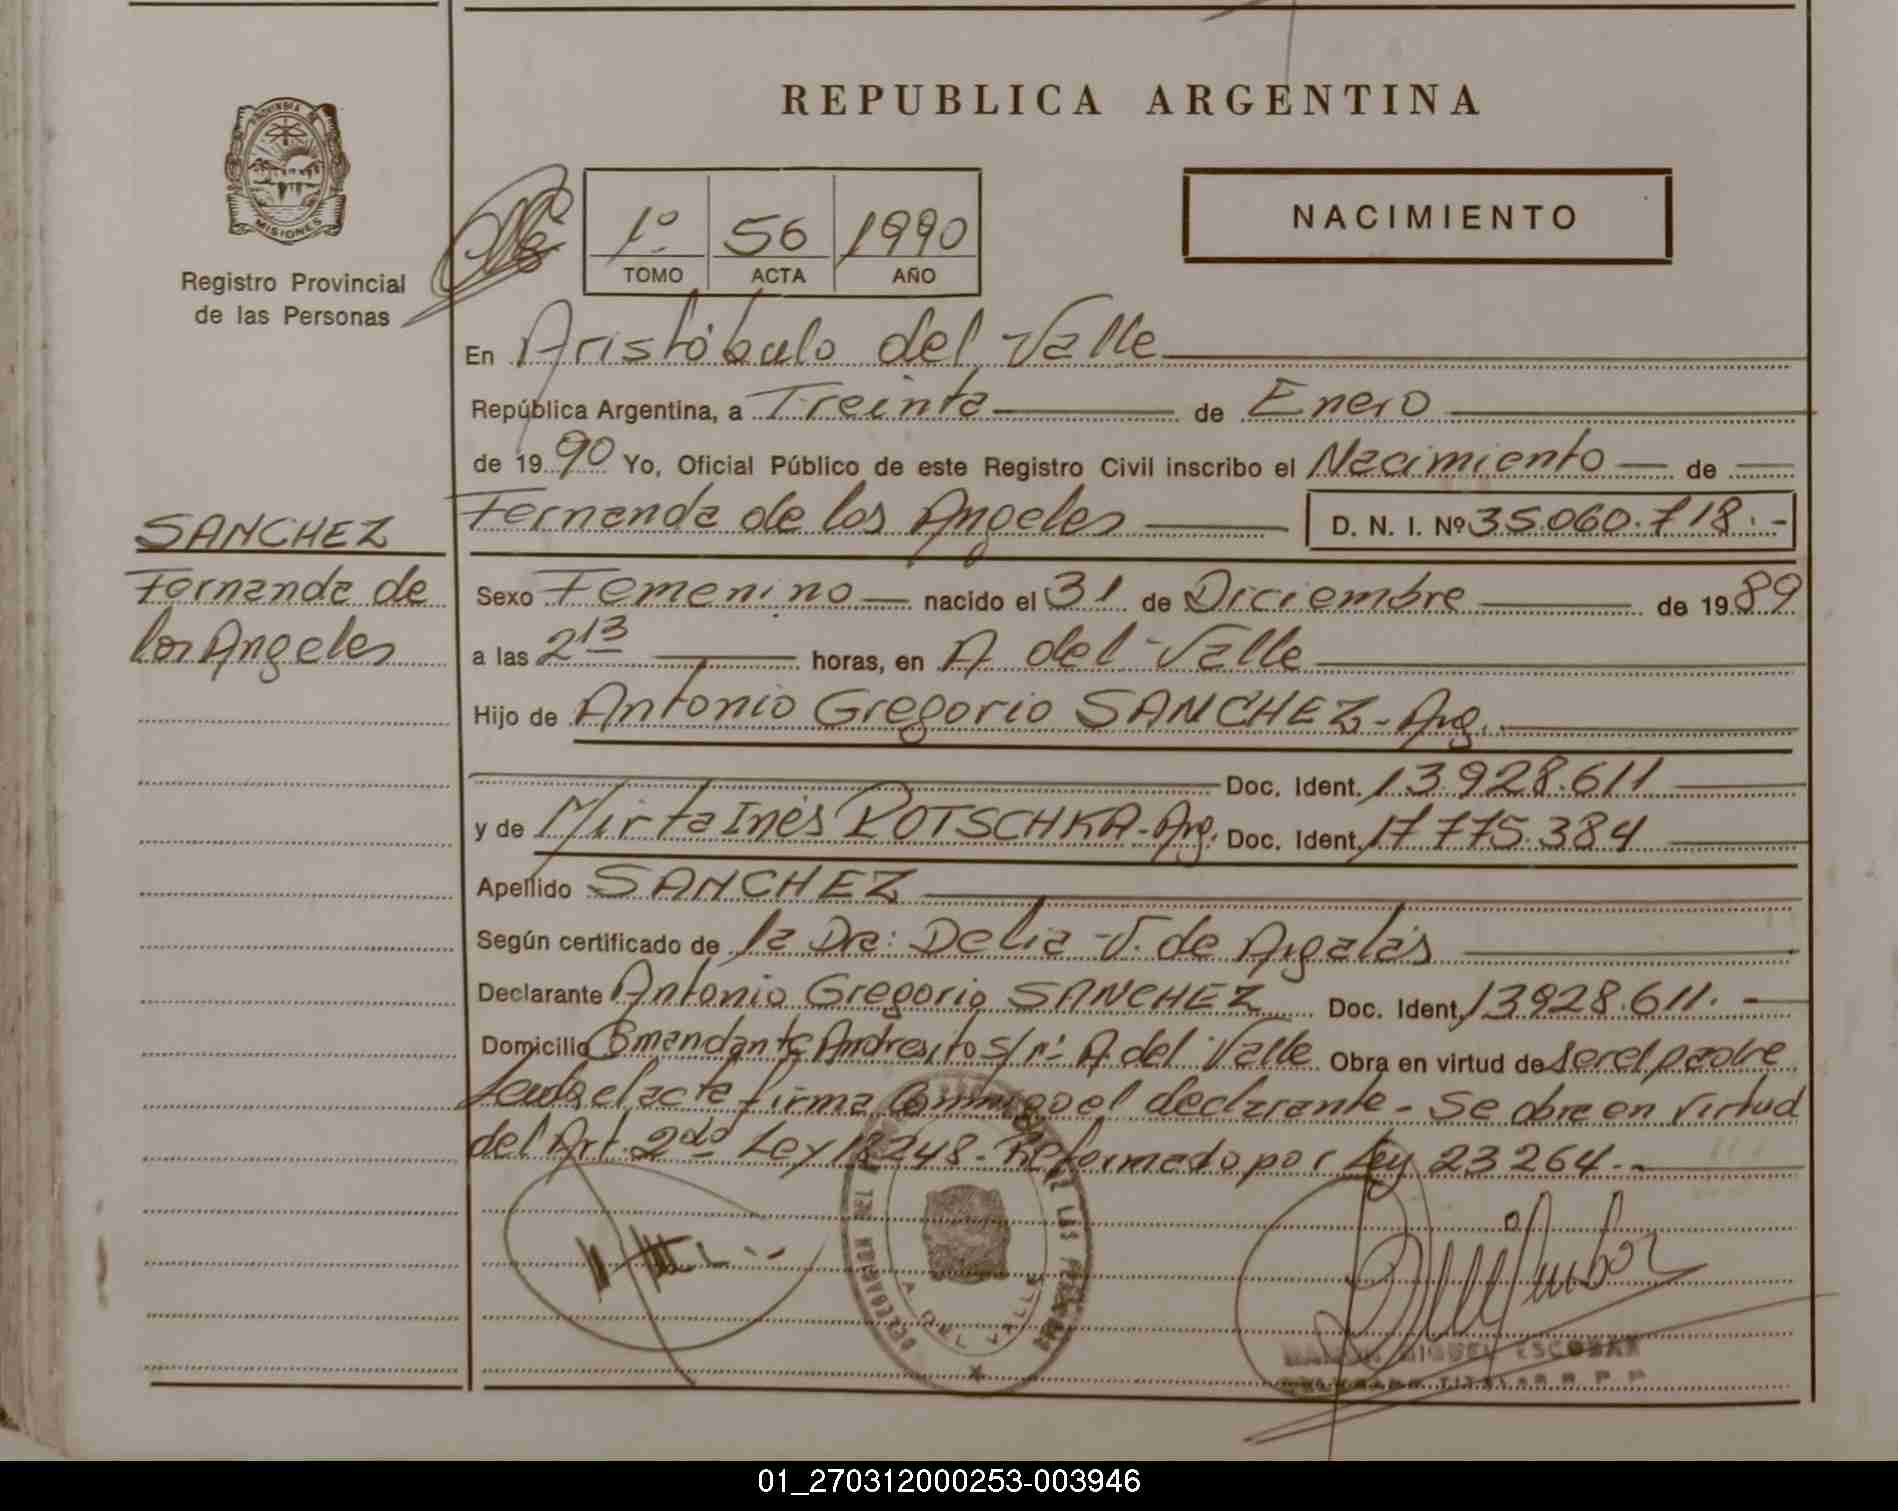 REPUBLICA ARGENTINA
PROVINCIA DE
MISIONES
Registro Provincial
de las Personas
1º 56 1990
TOMO ACTA AÑO
NACIMIENTO
En Aristóbulo del Valle
República Argentina, a Treinta de Enero
de 1990 Yo, Oficial Público de este Registro Civil inscribo el Nacimiento de
Fernanda de los Angeles D. N. I. Nº 35.060.718.-
SANCHEZ
Fernanda de
los Angeles
Sexo Femenino nacido el 31 de Diciembre de 1989
a las 2 13 horas, en A. del Valle
Hijo de Antonio Gregorio SANCHEZ - Arg.
Doc. Ident. 13.928.611
y de Mirta Inés ROTSCHKA - Arg. Doc. Ident. 17.775.384
Apellido SANCHEZ
Según certificado de la Dra: Delia V. de Argalás
Declarante Antonio Gregorio SANCHEZ Doc. Ident. 13928.611.
Domicilio Comandante Andresito s/nº A. del Valle Obra en virtud de ser el padre
Leida el acta firma conmigo el declarante - Se obra en virtud
del Art. 2do Ley 18248 - Reformado por Ley 23264.-
DELEGACION
DE LAS PERSONAS
A. DEL VALLE
RAMON MIGUEL ESCOBAR
TITULAR R P P
01_270312000253-003946